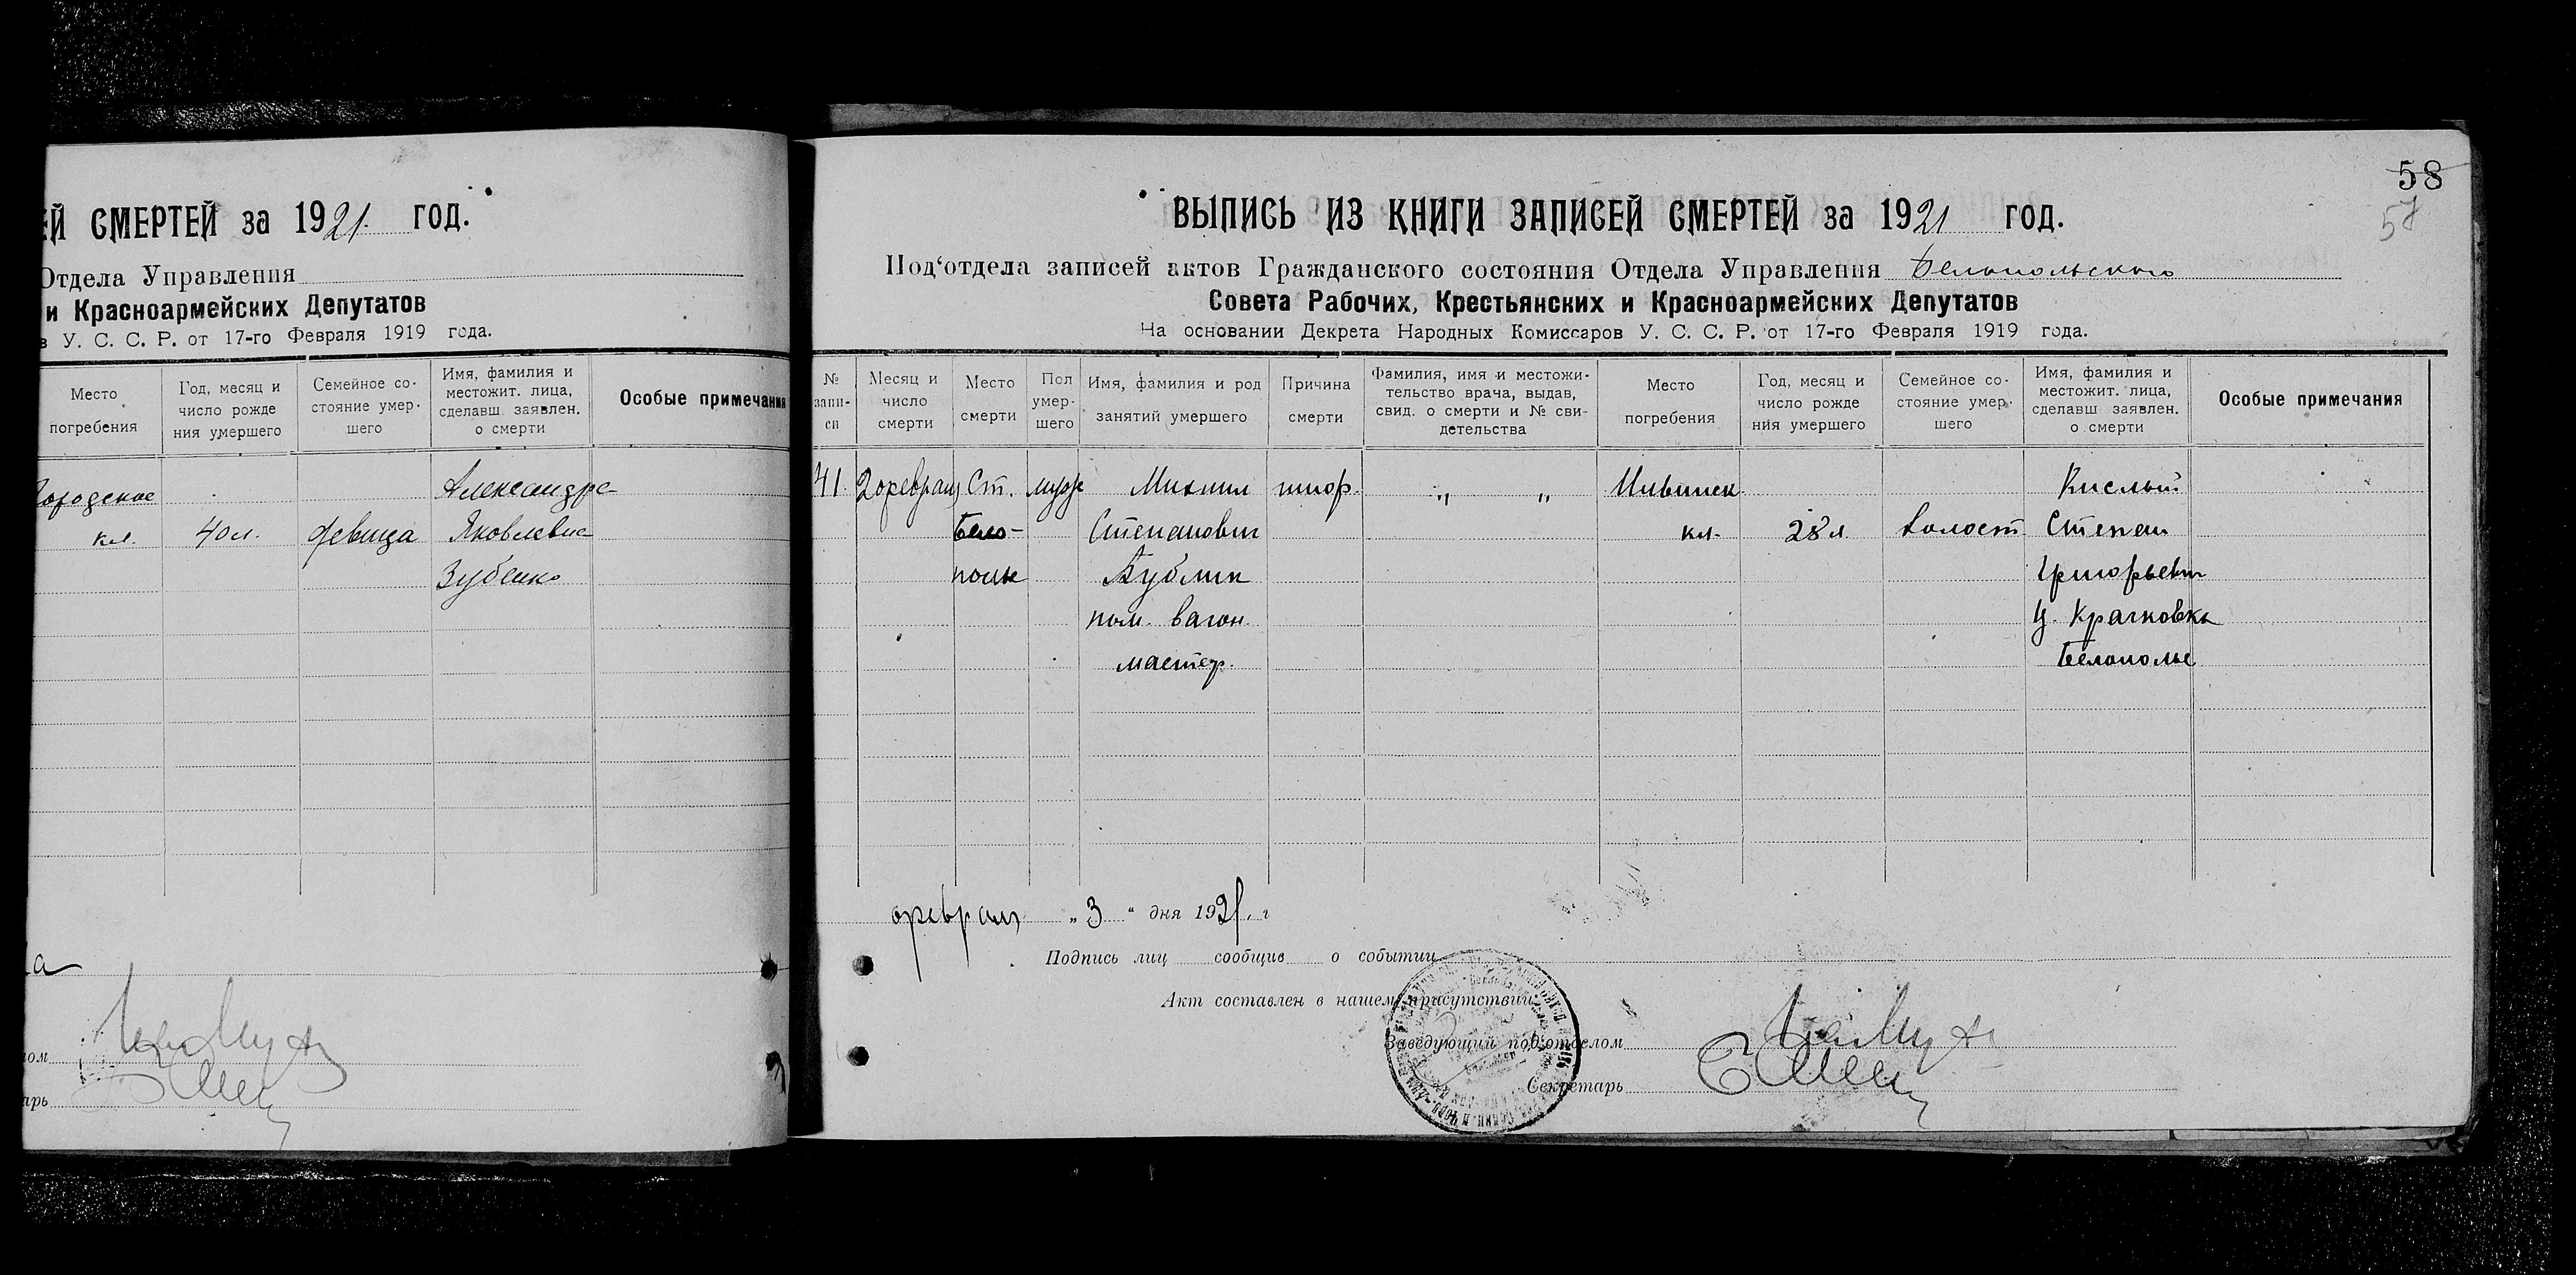 ЕЙ СМЕРТЕЙ за 1921. год.
Отдела Управления
и Красноармейских Депутатов
в У. С. С. Р. от 17-го Февраля 1919 года.
Место погребения
Год, месяц и число рожде ния умершего
Семейное со- стояние умер- шего
Имя, фамилия и местожит. лица, сделавш заявлен. о смерти
Особые примечания
Городское Александра
кл. 40 л. девица Яковлевна
Зубенко
58
57
ВЫПИСЬ ИЗ КНИГИ ЗАПИСЕЙ СМЕРТЕЙ за 1921 год.
Под‘отдела записей актов Гражданского состояния Отдела Управления Белопольского
Совета Рабочих, Крестьянских и Красноармейских Депутатов
На основании Декрета Народных Комиссаров У. С. С. Р. от 17-го Февраля 1919 года.
№ запи- си
Месяц и число смерти
Место смерти
Пол умер- шего
Имя, фамилия и род занятий умершего
Причина смерти
Фамилия, имя и местожи- тельство врача, выдав, свид. о смерти и № сви- детельства
Место погребения
Год, месяц и число рожде ния умершего
Семейное со- стояние умер. шего
Имя, фамилия и местожит. лица, сделавш заявлен. о смерти
Особые примечания
41. 2 февраля Ст. муж Михаил тиф. „ „ Ильинск.
Бело- Степанович кл. 28 л. холост Степан
полье Григорьевич
пом. вагон.
мастер. Белополье
февраля „ 3 “ дня 1921. г
Подпись лиц сообщив о событии
Акт составлен в нашем присутствии:
Заведующий под‘отделом
Секретарь